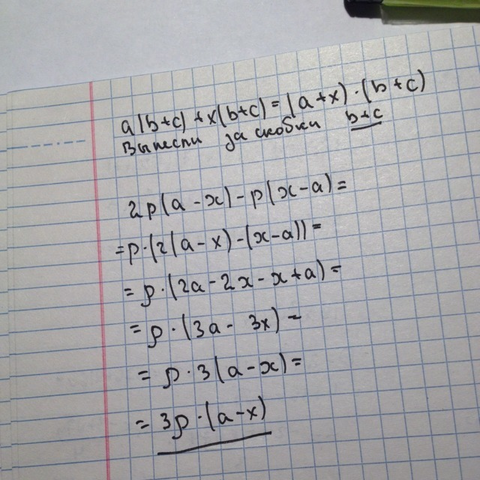 a(b+c)+x(b+c)=(a+x)·(b+c)
Вынесли за скобки b+c
2p(a-x)-p(x-a)=
=p·(2(a-x)-(x-a))=
=p·(2a-2x-x+a)=
=p·(3a-3x)=
=p·3(a-x)=
=3p·(a-x)